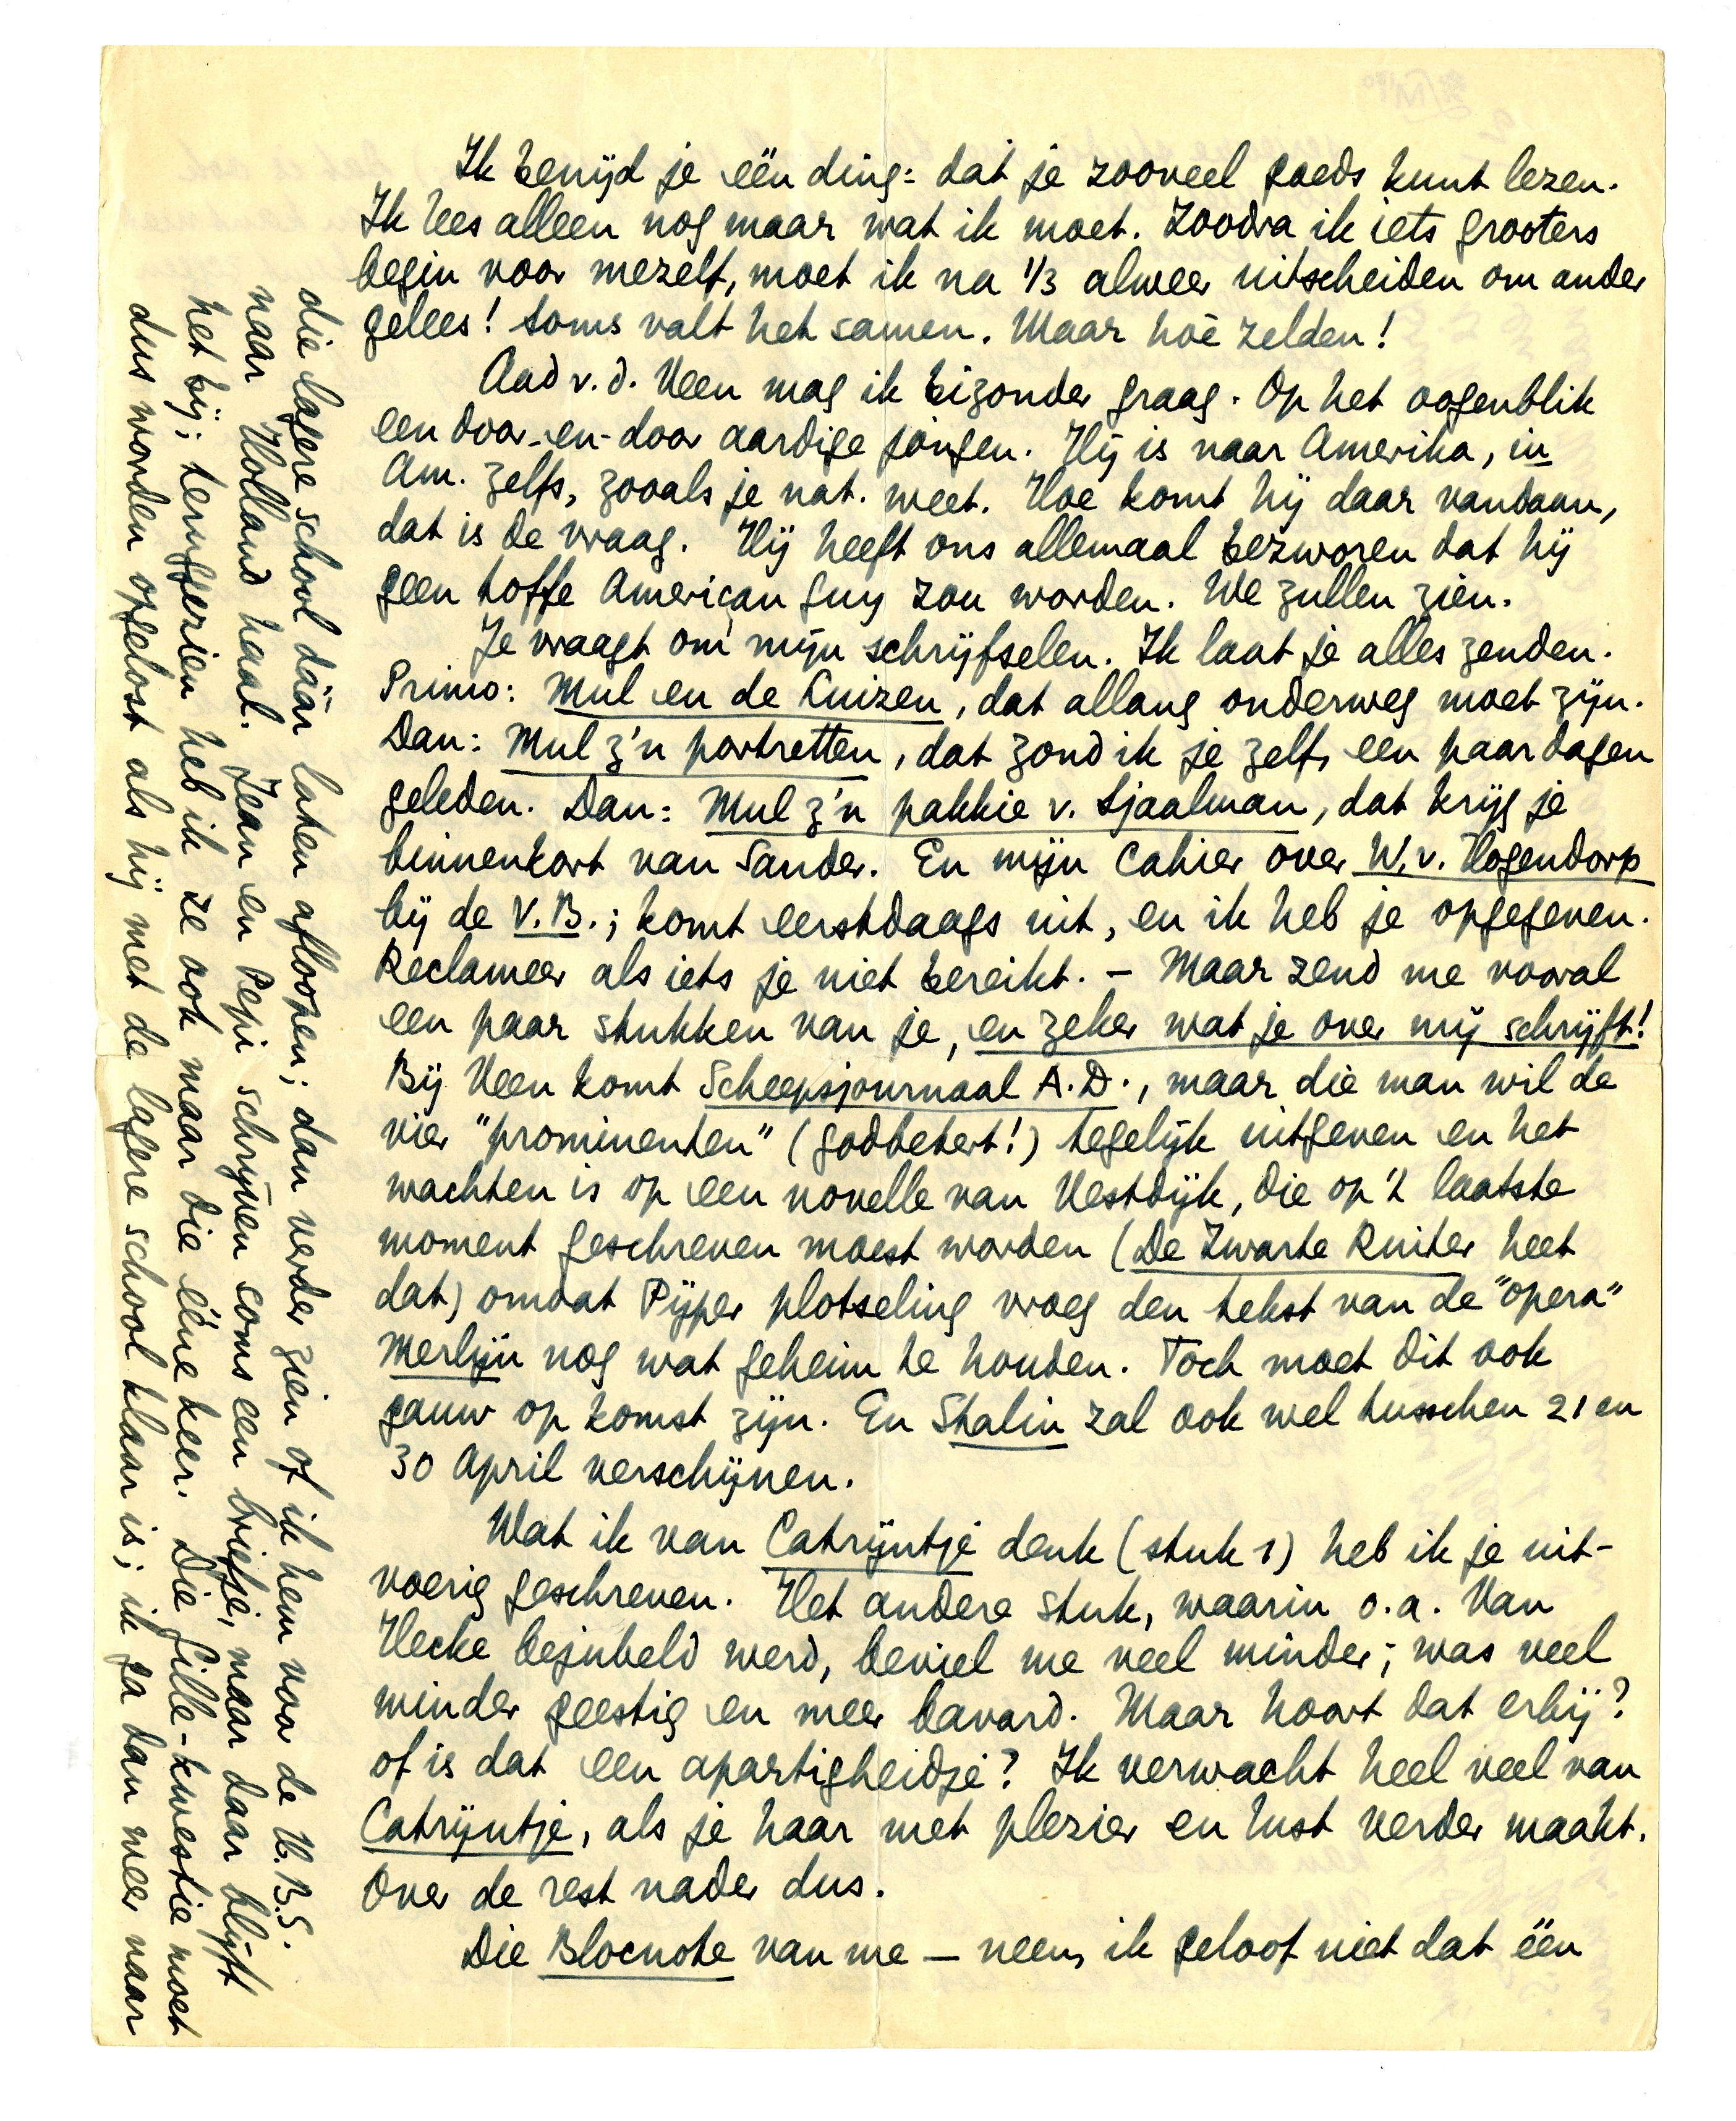 Ik benijd je één ding: dat je zooveel goeds kunt lezen.
Ik lees alleen nog maar wat ik moet. Zoodra ik iets grooters
begin voor mezelf, moet ik na 1/3 alweer uitscheiden om ander
gelees! Soms valt het samen. Maar hoè zelden!
Aad v. d. Veen mag ik bizonder graag. Op het oogenblik
een door-en-door aardige jongen. Hij is naar Amerika, in
Am. zelfs, zooals je nat. weet. Hoe komt hij daar vandaan,
dat is de vraag. Hij heeft ons allemaal bezworen dat hij
geen toffe American guy zou worden. We zullen zien.
Je vraagt om mijn schrijfselen. Ik laat je alles zenden.
Primo: Mul en de Luizen, dat allang onderweg moet zijn.
Dan: Mul z'n portretten, dat zond ik je zelf, een paar dagen
geleden. Dan: Mul z'n pakkie v. Sjaalman, dat krijg je
binnenkort van Sander. En mijn Cahier over W. v. Hogendorp
bij de V.B.; komt eerstdaags uit, en ik heb je opgegeven.
Reclameer als iets je niet bereikt. – Maar zend me vooral
een paar stukken van je, en zeker wat je over mij schrijft!
Bij Veen komt Scheepsjournaal A.D., maar die man wil de
vier "prominenten" (godbetert!) tegelijk uitgeven en het
wachten is op een novelle van Vestdijk, die op 't laatste
moment geschreven moest worden (De Zwarte Ruiter heet
dat) omdat Pijper plotseling vroeg den tekst van de "opera"
Merlijn nog wat geheim te houden. Toch moet dit ook
gauw op komst zijn. En Stalin zal ook wel tusschen 21 en
30 April verschijnen.
Wat ik van Catrijntje denk (stuk 1) heb ik je uit-
voerig geschreven. Het andere stuk, waarin o.a. Van
Hecke bejubeld werd, beviel me veel minder; was veel
minder geestig en meer bavard. Maar hoort dat erbij?
of is dat een apartigheidje? Ik verwacht heel veel van
Catrijntje, als je haar met plezier en lust verder maakt.
Over de rest nader dus.
Die Blocnote van me – neen, ik geloof niet dat één
die lagere school dáár laten afloopen; dan verder zien of ik hem voor de H.B.S.
naar Holland haal. Jean en Pepi schrijven soms een briefje, maar daar blijft
het bij; teruggezien heb ik ze ook maar die ééne keer. Die Gille-kwestie moet
dus worden opgelost als hij met de lagere school klaar is; ik ga dan weer naar